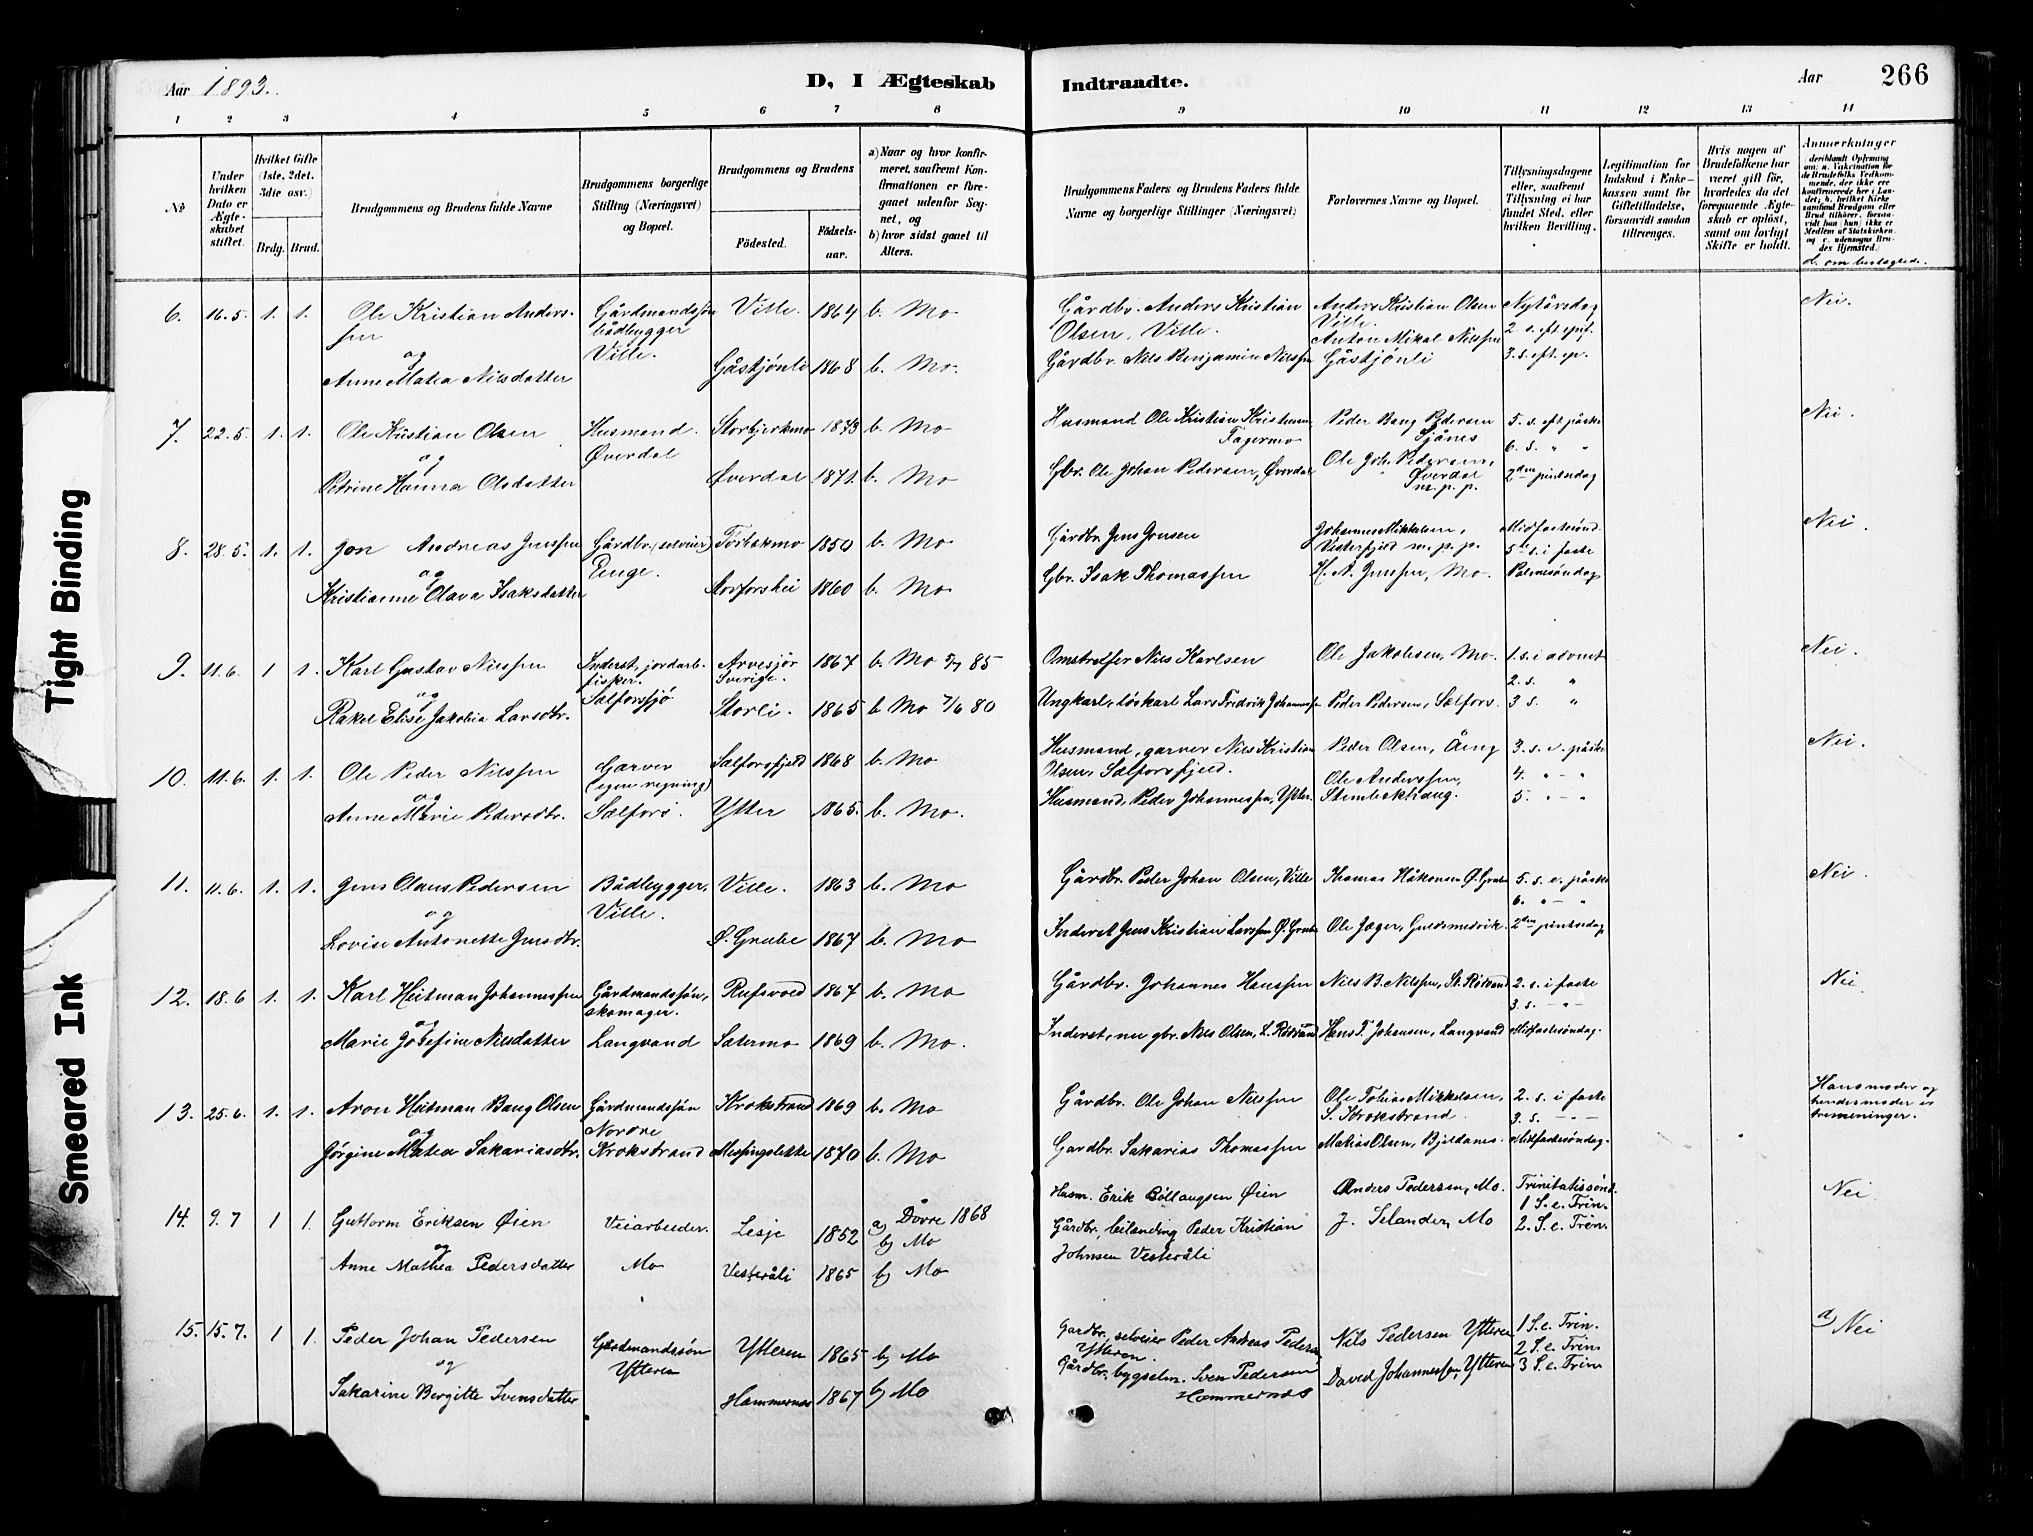 Aar 1893.
D, I Ægteskab
Indtraadte.
Aar 266
1 2 3 4 5 6 7 8 9 10 11 12 13 14
№
Under hvilken Dato er Ægteskabet stiftet.
Hvilket Gifte (1ste, 2det, 3die osv.)
Brdg. Brud.
Brudgommens og Brudens fulde Navne
Brudgommens borgerlige Stilling (Næringsvei) og Bopæl.
Brudgommens og Brudens
Födested.
Födselsaar.
a) Naar og hvor konfirmeret, saafremt Konfirmationen er foregaaet udenfor Sognet, og
b) hvor sidst gaaet til Alters.
Brudgommens Faders og Brudens Faders fulde Navne og borgerlige Stillinger (Næringsvei)
Forlovernes Navne og Bopæl.
Tillysningsdagene eller, saafremt Tillysning ei har fundet Sted, efter hvilken Bevilling.
Legitimation for Indskud i Enkekassen samt for Giftetilladelse, forsaavidt saadan tiltrænges.
Hvis nogen af Brudefolkene har været gift för, hvorledes da det foregaaende Ægteskab er oplöst, samt om lovligt Skifte er holdt.
Anmerkninger
d. om beslægtede.
6. 16.5. 1. 1. Ole Kristian Anderssen
og
Anne Matea Nilsdatter
Gårdmandssøn bådbygger Ville.
Ville. 1864 b. Mo
Gåstjønli 1868 b. Mo.
Gårdbr. Anders Kristian Olsen, Ville.
Gårdbr. Nils Benjamin Nilssen
Anders Kristian Olsen Ville.
Anton Mikal Nilssen Gåstjønli
Nytårsdag
2 s. eft. epif.
3. s. eft. ep.
Nei.
7. 22.5. 1. 1. Ole Kristian Olsen
og
Petrine Hanna Olsdatter
Husmand. Øverdal
Storbjerkmo 1873 b. Mo
Øverdal 1871. b. Mo
Husmand Ole Kristian Kristensen Fagermo
Gbr. Ole Johan Pedersen, Øverdal
Peder Bang Pedersen Sjånes
Ole Joh. Pedersen, Øverdal m.p.p.
5. s. eft. påske
6. s. " "
2den pintsedag
Nei.
8. 28.5. 1. 1. Jon Andreas Jenssen
og
Kristianne Olava Isaksdatter
Gårdbr. (selveier) Enge.
1850 b. Mo
Storforshei 1860 b. Mo
Gårdbr. Jens Jensen
Gbr. Isak Thomassen
Johannes Mikkelsen, Vesterfjeld m.p.p.
H. A. Jenssen, Mo.
Midfastesønd.
5te s. i faste
Palmesøndag
Nei.
9. 11.6. 1 1. Karl Gustav Nilssen
og
Rakel Elise Jakobia Larsdtr.
Inderst, jordarb. fisker. Salforsfjø
Arvesjör Sverige. 1867 b. Mo 5/7 85
Storli. 1865 b Mo 7/6 80
Omstreifer Nils Karlsen
Ungkarl, løskarl Lars Fredrik Johannessen
Ole Jakobsen, Mo.
Peder Pedersen, Salfors.
1. s. i advent
2. s. "
3 s. "
Nei.
10. 11.6. 1. 1. Ole Peder Nilssen
og
Anne Marie Pedersdtr.
Garver (egen regning) Selfors.
Salforsfjeld 1868 b. Mo
Ytter 1865. b. Mo.
Husmand, garver Nils Kristian Olsen, Salforsfjeld.
Husmand, Peder Johannessen, Ytter.
Peder Olsen, Åeng
Ole Anderssen,
3. s. e. påske
4. " - "
5. " - "
Nei.
11. 11.6. 1. 1. Jens Olaus Pedersen
og
Lovise Antonette Jensdtr.
Bådbygger. Ville.
Ville. 1863 b. Mo
Ø. Grube 1867 b. Mo
Gårdbr. Peder Johan Olsen, Ville
Inderst Jens Kristian Larssen Ø. Grube
Thomas Håkonsen Ø. Grube
Ole Jæger, Guldsmedvik.
5. s. e. påske
6. " - "
2den pintsedag
Nei.
12. 18.6 1. 1. Karl Heitman Johannessen
og
Marie Josefine Nilsdatter
Gårdmandssøn, skomager. Langvand
Rufsvold 1867 b. Mo
Satermo 1869 b. Mo.
Gårdbr. Johannes Hanssen
Inderst, nu gbr. Nils Olsen, L. Rødvand
Nils B. Nilssen, St. Røvand
Hans F. Johansen, Langvand
2. s. i faste
3. s. - " -
Midfastesøndag.
Nei
13. 25.6. 1. 1. Aron Heitman Bang Olsen
og
Jørgine Matea Sakariasdtr.
Gårdmandssøn Nordre Krokstrand
Krokstrand 1869 b. Mo
Messingslette 1870 b. Mo
Gårdbr. Ole Johan Nilssen
Gardbr. Sakarias Thomassen
Ole Tobias Mikkelsen, S. Krokstrand.
Matias Olsen, Bjeldanes.
2. s. i faste
3. s. - " -
Midfastesøndag.
Hans moder og hendes moder er tremeninger.
14. 9.7 1 1. Guttorm Eriksen Øien
og
Anne Mathea Pedersdatter
Veiarbeider. Mo
Lesje 1852 a) Dovre 1868 b) Mo
Vesteråli 1865 b) Mo
Husm. Erik Bøllaugsen Øien
Gårdbr. bilænding Peder Kristian Johnsen Vesteråli
Anders Pedersen, Mo.
J. Selander, Mo
Trinitatissønd.
1 S. e. Trin.
2. S. e. Trin.
Nei
15. 15.7. 1 1. Peder Johan Pedersen
og
Sakarine Bergitte Svensdatter
Gårdmandssøn Ytteren
Ytteren 1865 b) Mo
Hammernes 1867 b) Mo
Gardbr. selveier Peder Andreas Pedersen Ytteren.
Gårdbr. bygselm. Sven Pedersen Hammernæs
Nils Pedersen Ytteren
David Johannessen, Ytteren
1 S. e. Trin.
2 S. e. Trin.
3 S. e. Trin
d Nei
Tight Binding
Smeared Ink